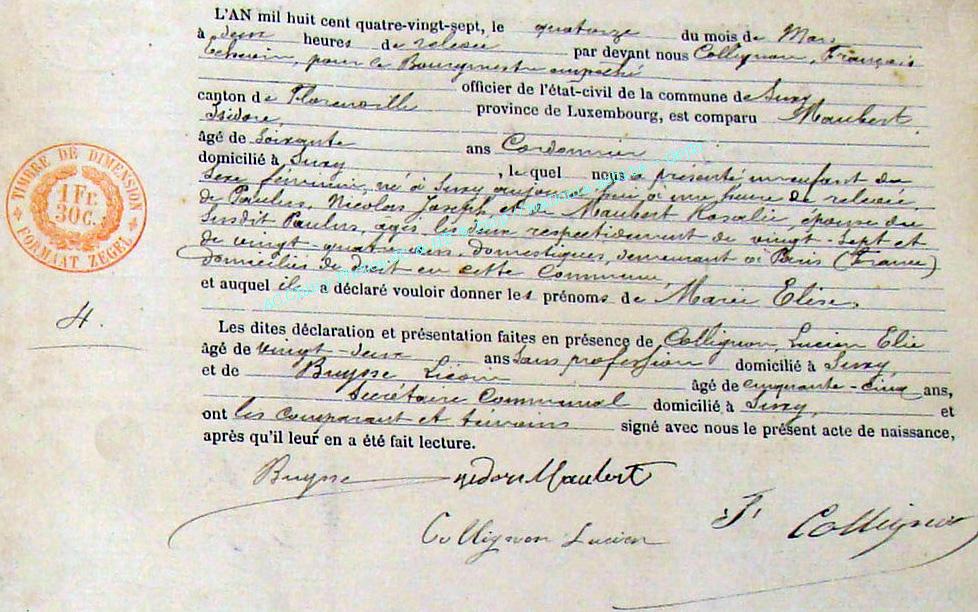 L'AN mil huit cent quatre-vingt-sept, le quatorze du mois de Mars
à deux heures de relevée par devant nous Collignon, François
Echevin, pour le Bourgmestre empêché
officier de l'état-civil de la commune de Suxy
canton de Florenville province de Luxembourg, est comparu Maubert,
Isidore,
âgé de soixante ans Cordonnier
domicilié à Suxy, le quel nous a présenté un enfant du
sexe féminin, né à Suxy aujourd'hui à une heure de relevée,
de Paulus, Nicolas Joseph et de Maubert Rosalie, épouse du
susdit Paulus, agés les deux respectivement de vingt-sept et
de vingt-quatre ans, domestiques, demeurant à Paris (France)
domiciliés de droit en cette Commune,
et auquel il a déclaré vouloir donner les prénoms de Marie Elise,
TIMBRE DE DIMENSION
1 Fr.
30 C.
FORMAAT ZEGEL
4.
Les dites déclaration et présentation faites en présence de Collignon, Lucien Elie
âgé de vingt-deux ans sans profession domicilié à Suxy,
et de Buysse Licour âgé de cinquante-cinq ans,
Secrétaire Communal domicilié à Suxy, et
ont les comparant et témoins signé avec nous le présent acte de naissance,
après qu'il leur en a été fait lecture.
Buysse Isidore Maubert
Collignon Lucien F. Collignon